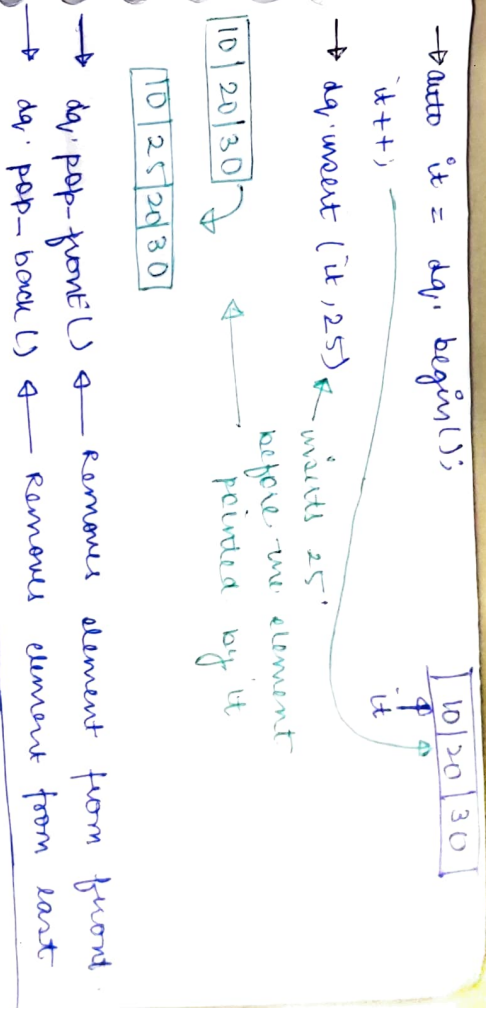 → auto it = dq. begin();
10|20|30
it++;
it
→ dq. insert (it, 25) ← inserts 25
before the element
pointed by it
10|20|30
10|25|20|30
→ dq. pop_front() ← Removes element from front
→ dq. pop_back() ← Removes element from east